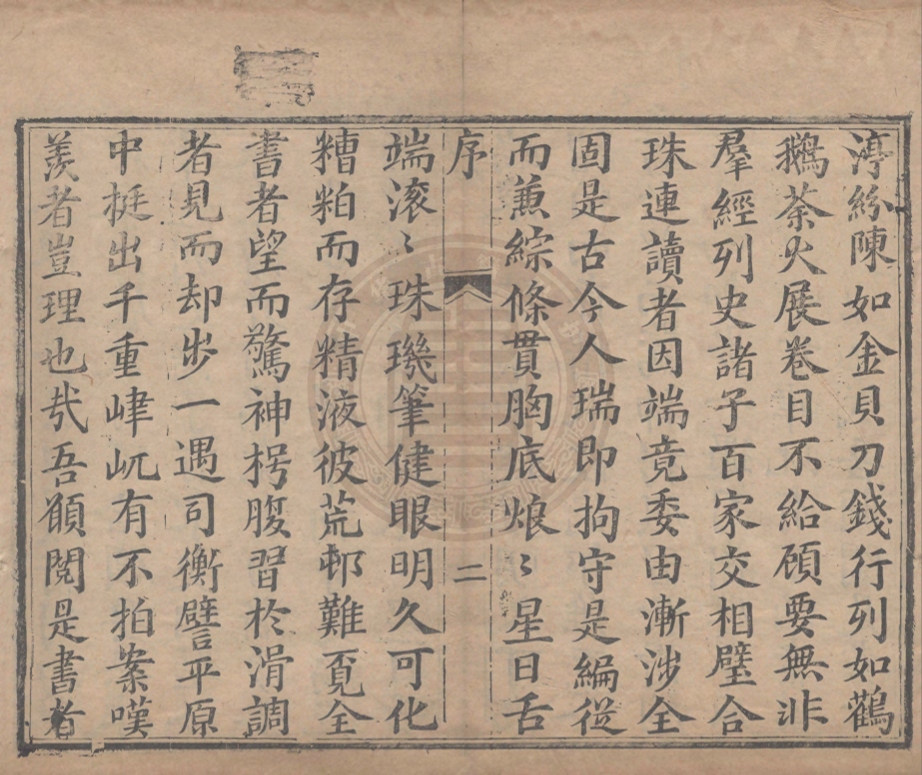 渟紛陳如金貝刀錢行列如鸛
鵝荼火展卷目不給顧要無非
羣經列史諸子百家交相璧合
珠連讀者因端竟委由漸涉全
固是古今人瑞即拘守是編從
而兼綜條貫胸底烺〻星日舌
序 二
端滚〻珠璣筆健眼明久可化
糟粕而存精液彼荒邨難覔全
書者望而驚神枵腹習於滑調
者見而却步一遇司衡譬平原
中挺出千重峍屼有不拍案嘆
羨者豈理也㢤吾願閱是書者